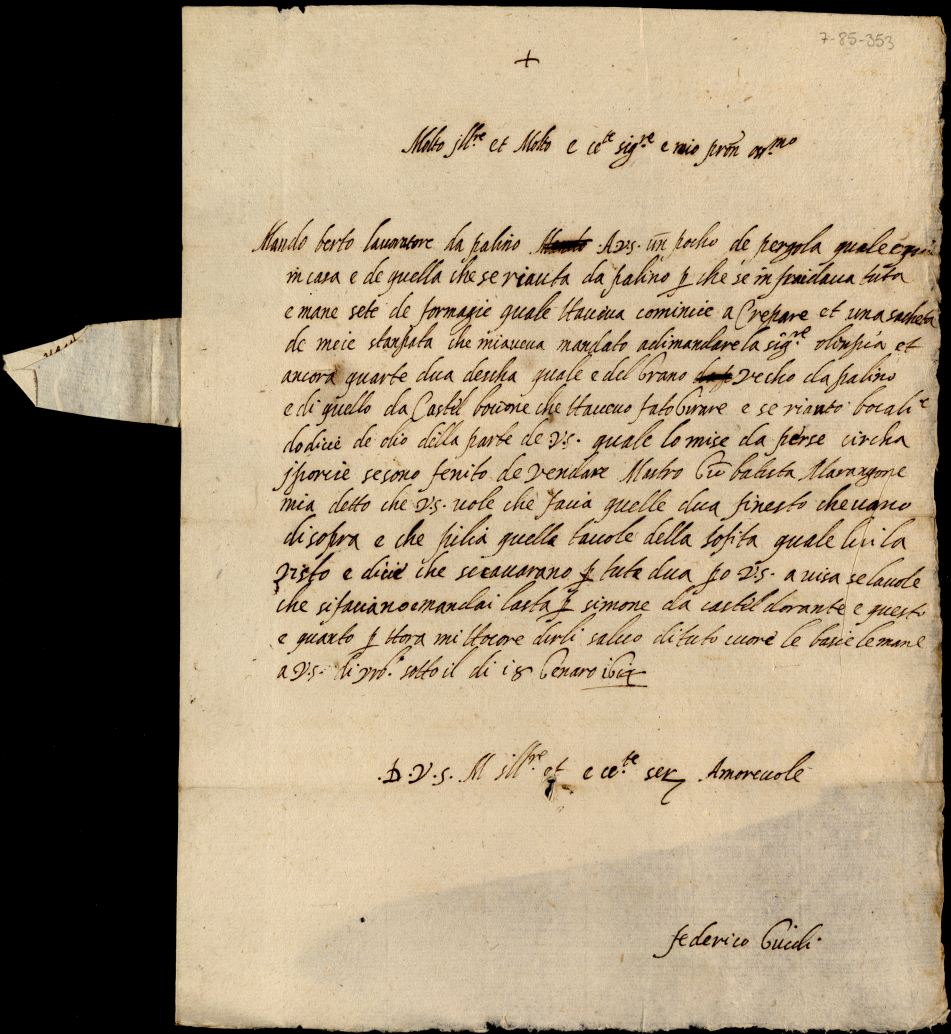 7-85-353
+
Molto Ill.re et Molto e ce.te sig.re e mio pron oss.mo
Mando berto lavoratore da palino A V.S. un pocho de pergola quale
in casa e de quella che se riauta da palino p che se infraidava tuta
e mane sete de formagie quale Haveva comincie a Crepare et una sacheta
de meie stanpata che miaveva mandato adimandare la sig.re olinpia et
ancora quarte dua descha quale e del Grano Vecho da palino
e di quello da Castel bocione che Havevo fato Girare e se riauto bocali
dodicie de olio della parte de V.S. quale lo mise da perse circha
jporcie se sono fenito de Vendare Mastro Gio batista Marangone
mia detto che V.S. vole che facia quelle dua finestre che vano
di sopra e che pilia quelle tavole della sofita quale lui la
Visto e dicie che se cavarano p tute dua po V.S. avisa se la vole
che si faciano e mandai lasta p simone da castel dorante e questo
e quanto p Hora mi Hocore dirli salvo di tuto cuore le bacie le mane
a V.S. di Urb.o sotto il di 18 Genaro
.D.V.S. M Ill.re et e ce.te ser Amorevole
federico Guidi.